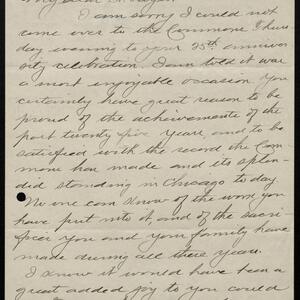 My dear
I am sorry I could not
come over to the Commons Thurs-
day evening to your 25th anniver-
sity celebration. I am told it was
a most enjoyable occasion. You
certainly have great reason to be
proud of the achievements of the
past twenty five years, and to be
satisfied with the record the Com-
mons has made and its splen-
did standing in Chicago to day.
No one can know of the work you
have put into it and of the sacri-
fices you and your family have
made during all these years.
I know it would have been a
great added joy to you could